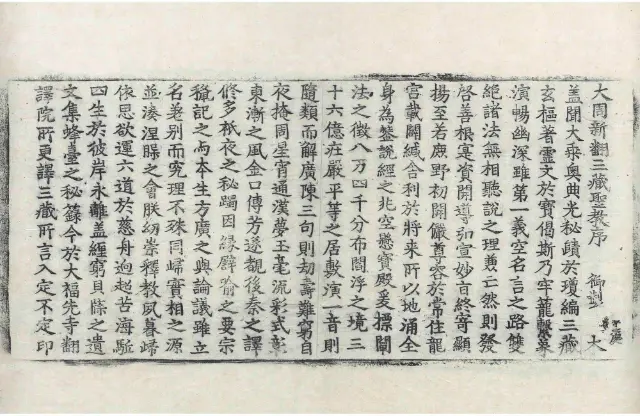 大周新翻三藏聖教序 御製 大
蓋聞大乘奧典光秘賾於瓊編三藏
玄樞著靈文於寶偈斯乃牢籠繫象
演暢幽深雖第一義空名言之路雙
絕諸法無相聽說之理兼亡然則發
啓善根寔資開導引宣妙音終寄顯
揚至若鹿野初開儼尊容於常住龍
宫載闢緘舍利於將來所以地涌全
身為鑒說經之兆空懸寶殿爰標闡
法之徵八万四千分布閻浮之境三
十六億莊嚴平等之居敷演一音則
隨類而解廣陳三句則劫壽難窮自
夜掩周星宵通漢夢玉毫流彩式彰
東漸之風金口傳芳遂覩後秦之譯
修多祇夜之秘躅因緣譬喻之要宗
記之而本生方廣之與論議雖立
名差別而究理不殊同歸實相之源
並湊涅槃之會朕幼崇釋教夙暮歸
依思欲運六道於慈舟逈超苦海驅
四生於彼岸永離盖纏窮貝條之遺
文集蜂臺之秘籙今於大福光寺翻
譯院所更譯三藏所言入定不定印